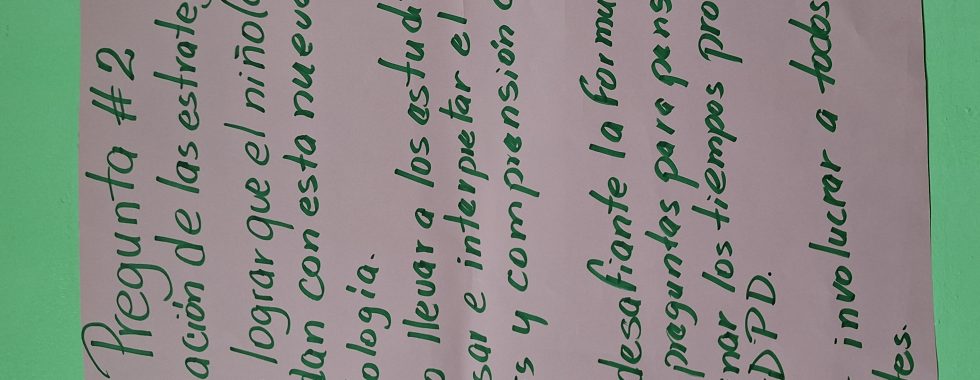 Pregunta # 2
ación de las estrate
lograr que el niño(
dan con esta nuev
ología.
o llevar a los estudi
sar e interpretar el
s y comprensión
desafiante la formu
preguntas para pens
nar los tiempos pro
DPD.
involucrar a todos
es.